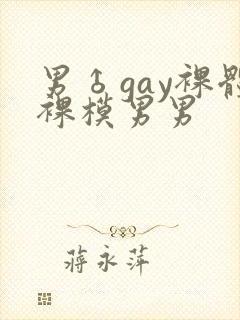 男♂gay裸體
裸模男男
蔣永萍